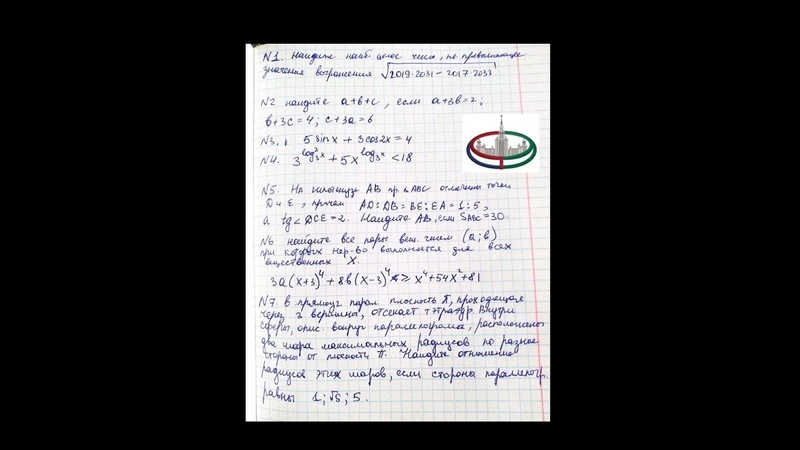 N1. Найдите наиб. целое число, не превышающее
значения выражения √2019·2031 – 2017·2033
N2 найдите a+b+c, если a+3b=2;
b+3c=4; c+3a=6
N3. 5 sinx + 3cos2x = 4
N4. 3^log₃²x + 5x^log₃x < 18
N5. На гипотенузе AB пр. ΔABC отмечены точки
D и E, причем AD:DB = BE:EA = 1:5,
а tg∠DCE = 2. Найдите AB, если SABC=30.
N6 найдите все пары вещ. чисел (a;b)
при которых нер-во выполняется для всех
вещественных x.
3a(x+3)⁴ + 8b(x-3)⁴ ≥ x⁴+54x²+81
N7. В прямоуг парал. плоскость П, проходящая
через 3 вершины, отсекает тэтраэдр. Внутри
сферы, опис. вокруг параллелограма, расположены
два шара максимальных радиусов по разные
стороны от плоскости П. Найдите отношение
радиусов этих шаров, если стороны параллелогр.
равны 1; √5; 5.